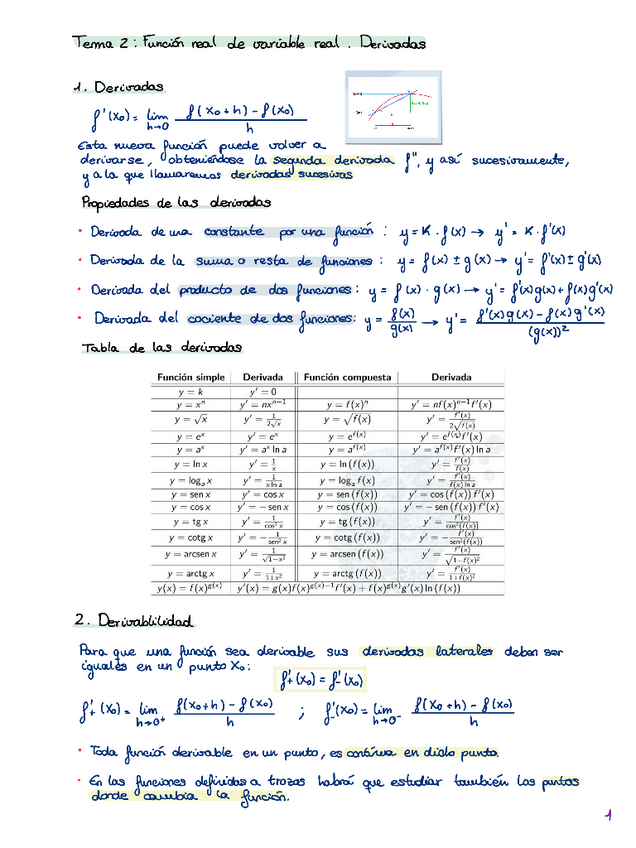 Tema 2: Función real de variable real. Derivadas
1. Derivadas
f'(x₀) = lim h→0 f(x₀+h) - f(x₀) / h
Esta nueva función puede volver a
derivarse, obteniéndose la segunda derivada f'', y así sucesivamente,
y a la que llamaremos derivadas sucesivas
Propiedades de las derivadas
· Derivada de una constante por una función : y = K · f(x) → y' = K · f'(x)
· Derivada de la suma o resta de funciones : y = f(x) ± g(x) → y' = f'(x) ± g'(x)
· Derivada del producto de dos funciones : y = f(x) · g(x) → y' = f'(x)g(x) + f(x)g'(x)
· Derivada del cociente de dos funciones: y = f(x)/g(x) → y' = f'(x)g(x) - f(x)g'(x) / (g(x))²
Tabla de las derivadas
Función simple Derivada Función compuesta Derivada
y = k y' = 0
y = xⁿ y' = nxⁿ⁻¹ y = f(x)ⁿ y' = nf(x)ⁿ⁻¹f'(x)
y = √x y' = 1/2√x y = √f(x) y' = f'(x)/2√f(x)
y = eˣ y' = eˣ y = e^f(x) y' = e^f(x) f'(x)
y = aˣ y' = aˣ ln a y = a^f(x) y' = a^f(x) f'(x) ln a
y = ln x y' = 1/x y = ln (f(x)) y' = f'(x)/f(x)
y = logₐ x y' = 1/x ln a y = logₐ f(x) y' = f'(x)/f(x) ln a
y = sen x y' = cos x y = sen (f(x)) y' = cos (f(x)) f'(x)
y = cos x y' = − sen x y = cos (f(x)) y' = − sen (f(x)) f'(x)
y = tg x y' = 1/cos² x y = tg (f(x)) y' = f'(x)/cos²(f(x))
y = cotg x y' = − 1/sen² x y = cotg (f(x)) y' = − f'(x)/sen²(f(x))
y = arcsen x y' = 1/√1−x² y = arcsen (f(x)) y' = f'(x)/√1−f(x)²
y = arctg x y' = 1/1+x² y = arctg (f(x)) y' = f'(x)/1+f(x)²
y(x) = f(x)^g(x) y'(x) = g(x)f(x)^g(x)−1 f'(x) + f(x)^g(x) g'(x) ln (f(x))
2. Derivablilidad
Para que una función sea derivable sus derivadas laterales deben ser
iguales en un punto x₀:
f'₊(x₀) = f'₋(x₀)
f'₊(x₀) = lim h→0⁺ f(x₀+h) - f(x₀) / h ; f'₋(x₀) = lim h→0⁻ f(x₀+h) - f(x₀) / h
· Toda función derivable en un punto, es continua en dicho punto.
· En las funciones definidas a trozos habrá que estudiar también los puntos
donde cambia la función.
1